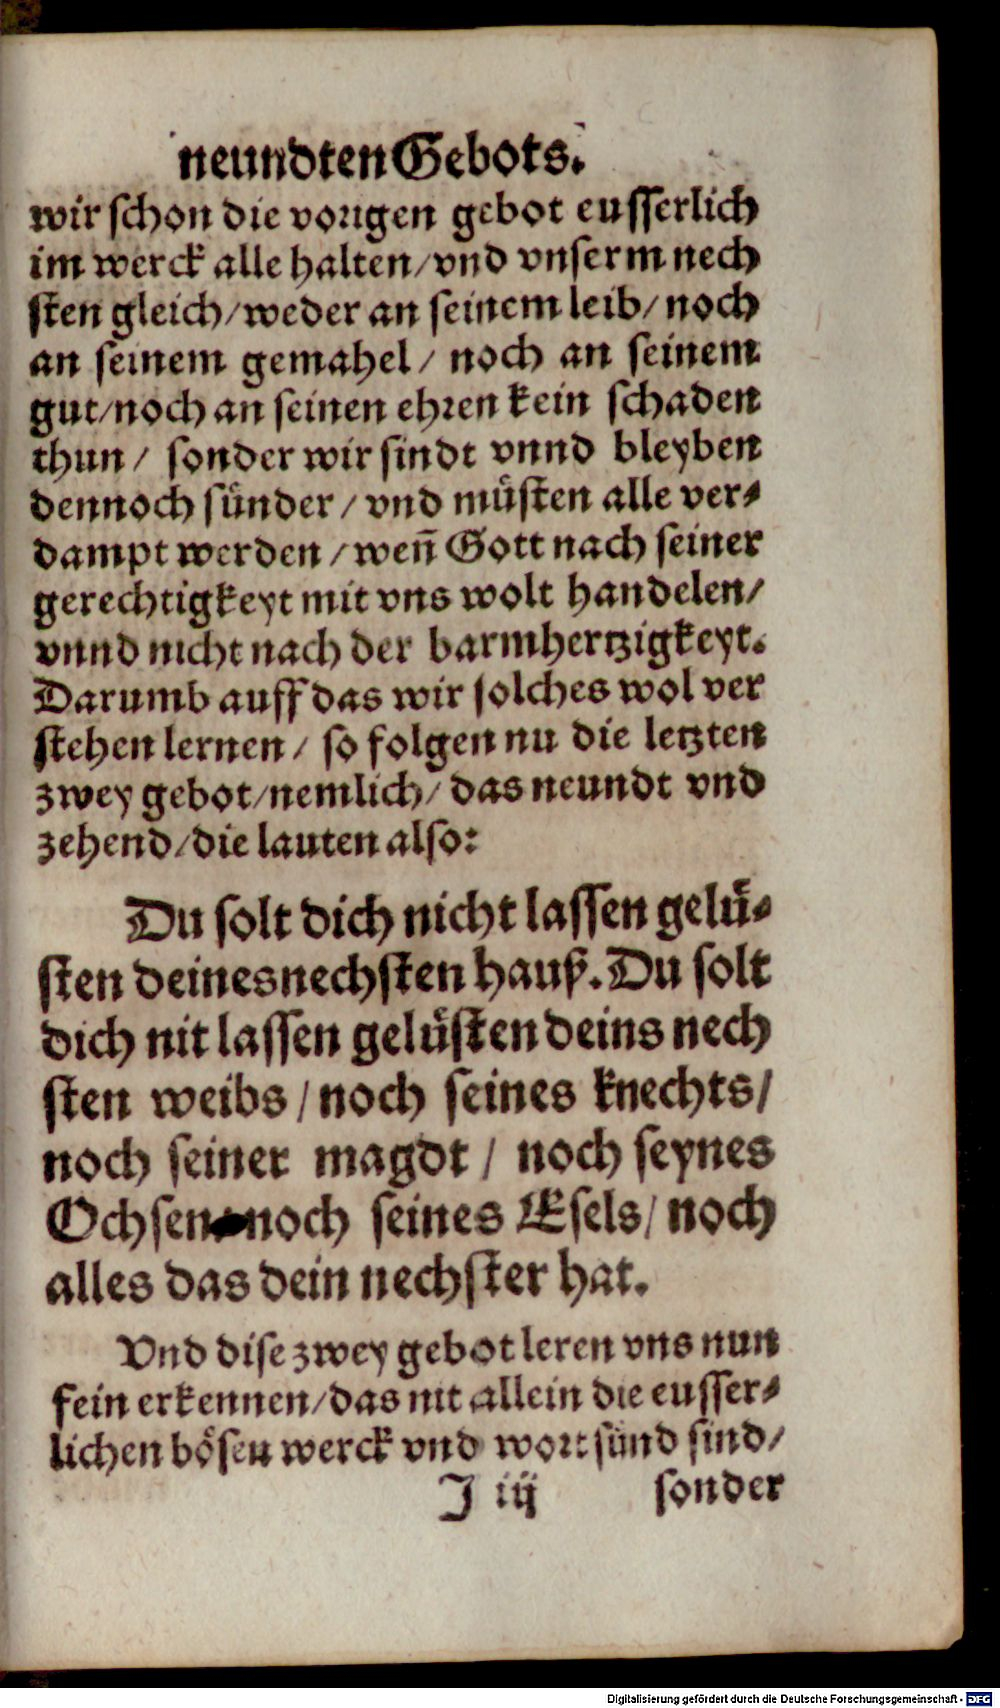 neundten Gebots.
wir schon die vorigen gebot eusserlich
im werck alle halten/vnd vnserm nech
sten gleich/weder an seinem leib/noch
an seinem gemahel/ noch an seinem
gut/noch an seinen ehren kein schaden
thun/ sonder wir sindt vnnd bleyben
dennoch sünder/vnd müsten alle ver⸗
dampt werden/wen̄ Gott nach seiner
gerechtigkeyt mit vns wolt handelen/
vnnd nicht nach der barmhertzigkeyt.
Darumb auff das wir solches wol ver
stehen lernen/ so folgen nu die letzten
zwey gebot/nemlich/das neundt vnd
zehend/die lauten also:
Du solt dich nicht lassen gelü⸗
sten deines nechsten hauß. Du solt
dich nit lassen gelüsten deins nech
sten weibs/noch seines knechts/
noch seiner magdt/ noch seynes
Ochsen noch seines Esels/noch
alles das dein nechster hat.
Vnd dise zwey gebot leren vns nun
fein erkennen/das nit allein die eusser⸗
lichen bösen werck vnd wort sünd sind/
J iij sonder
Digitalisierung gefördert durch die Deutsche Forschungsgemeinschaft - DFG